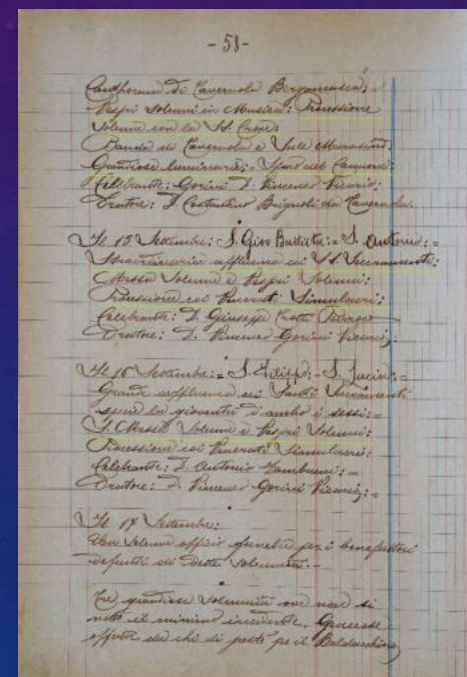 - 51 -
di Tavernola Bergamasca;
Vespri Solenni in Musica: Processione
Solenne con la SS. Croce;
Banda di Tavernola e Sale Marasino;
Grandiosa luminaria; - Spari del Cannone;
Celebrante: Gorini D. Vincenzo Vicario;
Oratore: D. Costantino Brignoli da Tavernola.
Il 15 Settembre: S. Giov. Battista: = S. Antonio: =
Straordinaria affluenza ai SS. Sacramenti:
Messa Solenne e Vespri Solenni:
Processione coi Venerati Simulacri:
Celebrante: D. Giuseppe
Oratore: D. Vincenzo Gorini Vicario;
Il 16 Settembre: = S. Filippo: - S. Lucia: =
Grande affluenza ai Santi Sacramenti
specie la gioventù d'ambo i sessi: =
S. Messa Solenne e Vespri Solenni:
Processione coi Venerati Simulacri:
Celebrante: D. Antonio Zamboni: =
Oratore: D. Vincenzo Gorini Vicario; =
Il 17 Settembre:
Uno Solenne officio funebre per i benefattori
defunti di dette Solennità. -
Tre grandiose Solennità ove non si
notò il minimo incidente. Generose
offerte da chi si portò per il Baldacchino